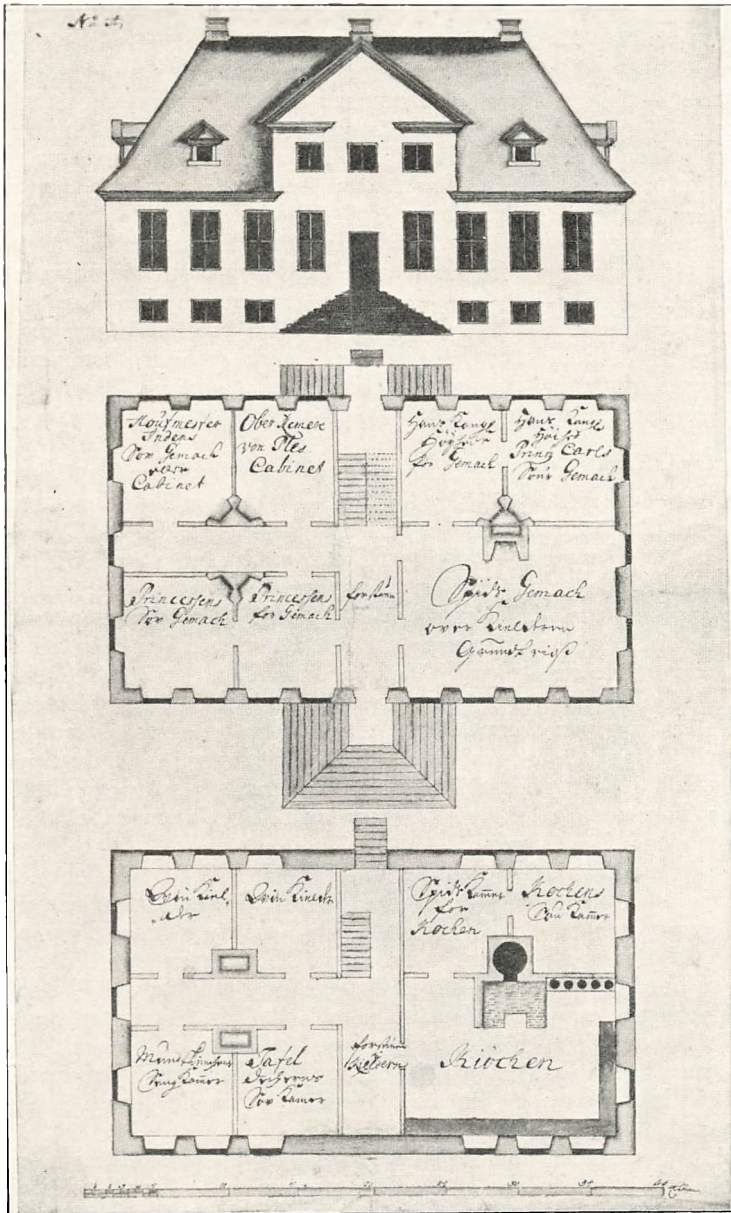 No A,
Houfmester
Indens
Sov Gemach
Cabinet
Ober Kemere
von Ples
Cabinet
Hans Kongl
for Gemach
Hans Kongl
Höiheds
Printz Carls
Sove Gemach
Princessens
Sov Gemach
Princessens
for Gemach
forstuen
Spiise Gemach
over Kielderen
Grundtrids
Viin Kiel,
der
Viin Kielder
Spiis Kammer
for
Kochen
Kochens
Sov Kammer
Mund
Seng Kammer
Tafel
deckernes
Sov Kamer
forstuen
Kielderen
Kiöchen